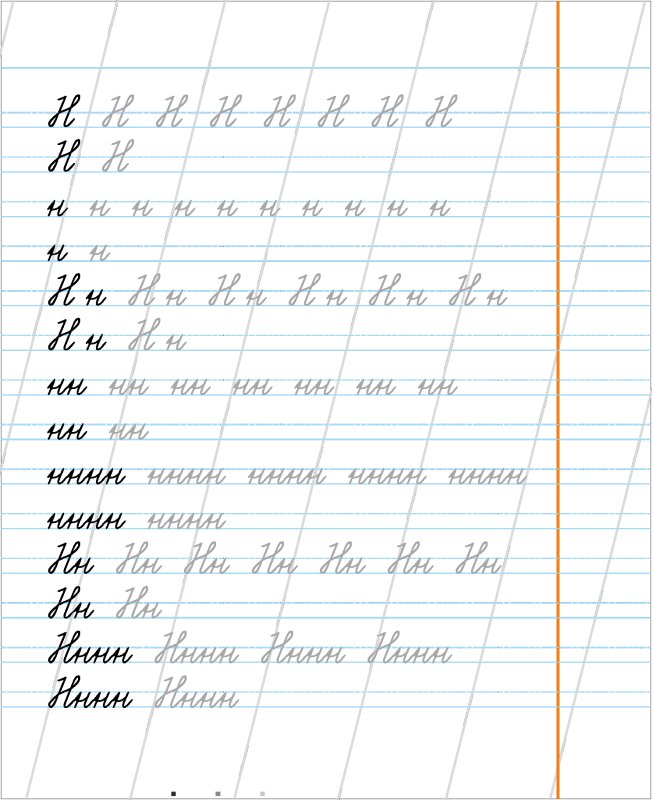 Н Н Н Н Н Н Н Н
Н Н
н н н н н н н н н н
н н
Н н Н н Н н Н н Н н Н н
Н н Н н
нн нн нн нн нн нн нн
нн нн
нннн нннн нннн нннн нннн
нннн нннн
Нн Нн Нн Нн Нн Нн Нн
Нн Нн
Нннн Нннн Нннн Нннн
Нннн Нннн